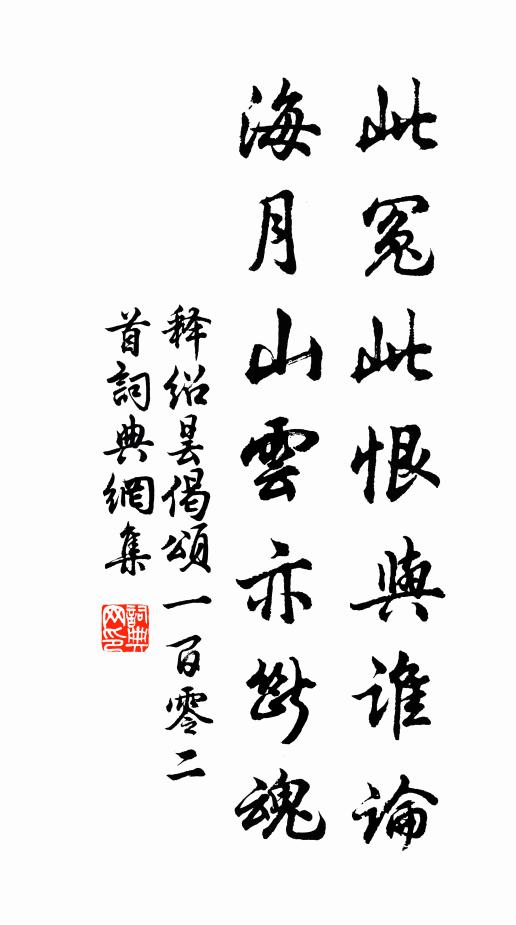 此冤此恨與誰論
海月山雲亦斷魂
釋紹曇偈頌一百零二
首詞典網集
詞典
网印